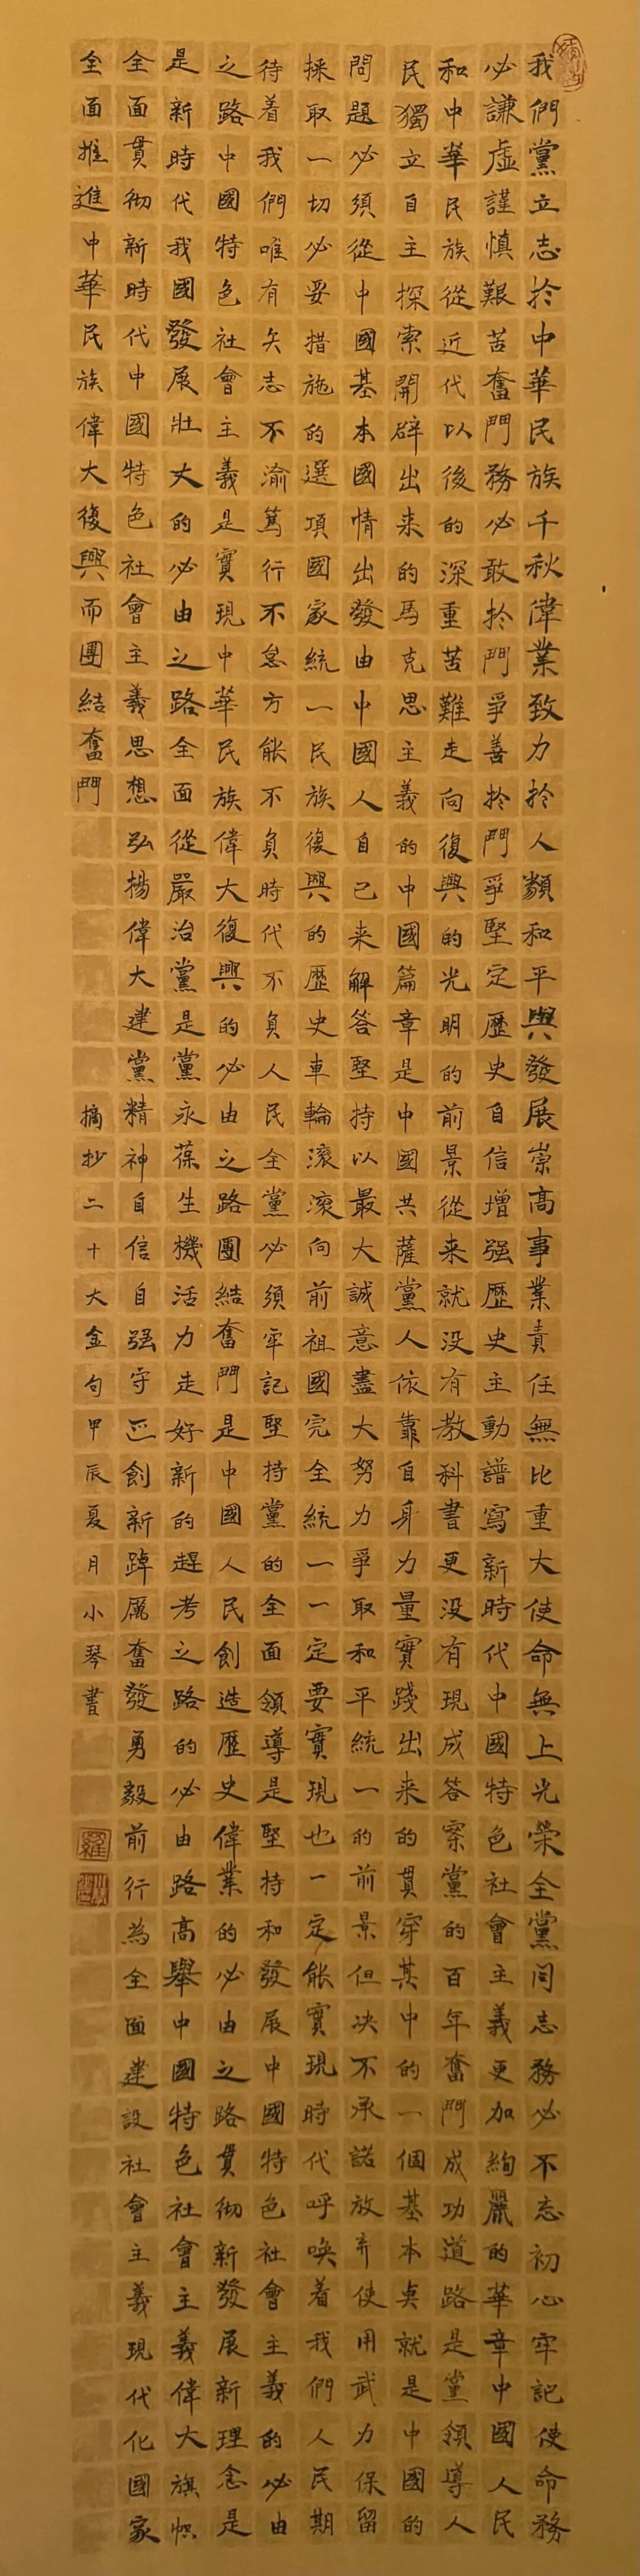 我們黨立志於中華民族千秋偉業致力於人類和平與發展崇高事業責任無比重大使命無上光榮全黨同志務必不忘初心牢記使命務
必謙虛謹慎艱苦奮鬥務必敢於鬥爭善於鬥爭堅定歷史自信增強歷史主動譜寫新時代中國特色社會主義更加絢麗的華章中國人民
和中華民族從近代以後的深重苦難走向復興的光明的前景從來就没有教科書更没有現成答案黨的百年奮鬥成功道路是黨領導人
民獨立自主探索開辟出来的馬克思主義的中國篇章是中國共薩黨人依靠自身力量實踐出来的貫穿其中的一個基本奌就是中國的
問題必須從中國基本國情出發由中國人自己来解答堅持以最大誠意盡大努力爭取和平統一的前景但决不承諾放弃使用武力保留
採取一切必要措施的選項國家統一民族復興的歷史車輪滚滚向前祖國完全統一一定要實現也一定能實現時代呼唤着我們人民期
待着我們唯有矢志不渝篤行不怠方能不負時代不負人民全黨必須牢記堅持黨的全面領導是堅持和發展中國特色社會主義的必由
之路中國特色社會主義是實現中華民族偉大復興的必由之路團結奮鬥是中國人民創造歷史偉業的必由之路貫彻新發展新理念是
是新時代我國發展壯大的必由之路全面從嚴治黨是黨永葆生機活力走好新的趕考之路的必由路高舉中國特色社會主義偉大旗幟
全面貫彻新時代中國特色社會主義思想弘揚偉大建黨精神自信自強守正創新踔厲奮發勇毅前行為全面建設社會主義現代化國家
全面推進中華民族偉大復興而團結奮鬥
摘抄二十大金句甲辰夏月小琴書
羅